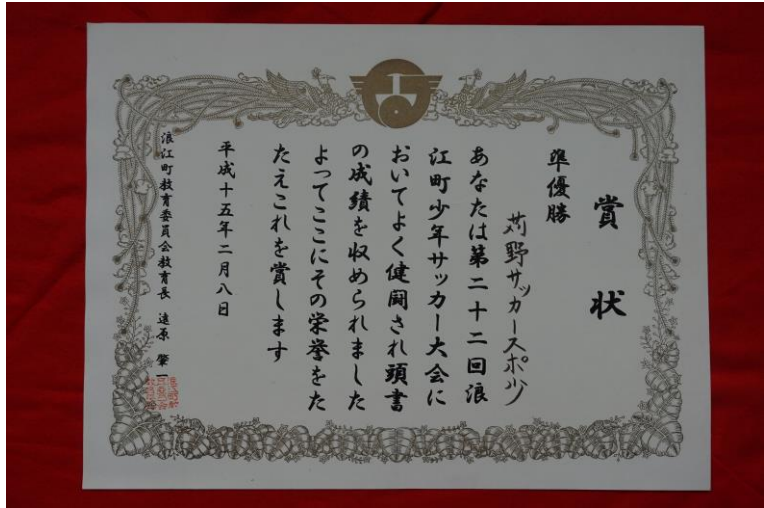 賞状
準優勝
苅野サッカースポ少
あなたは第二十二回浪
江町少年サッカー大会に
おいてよく健闘され頭書
の成績を収められました
よってここにその栄誉をた
たえこれを賞します
平成十五年二月八日
浪江町教育委員会教育長 遠原 肇一